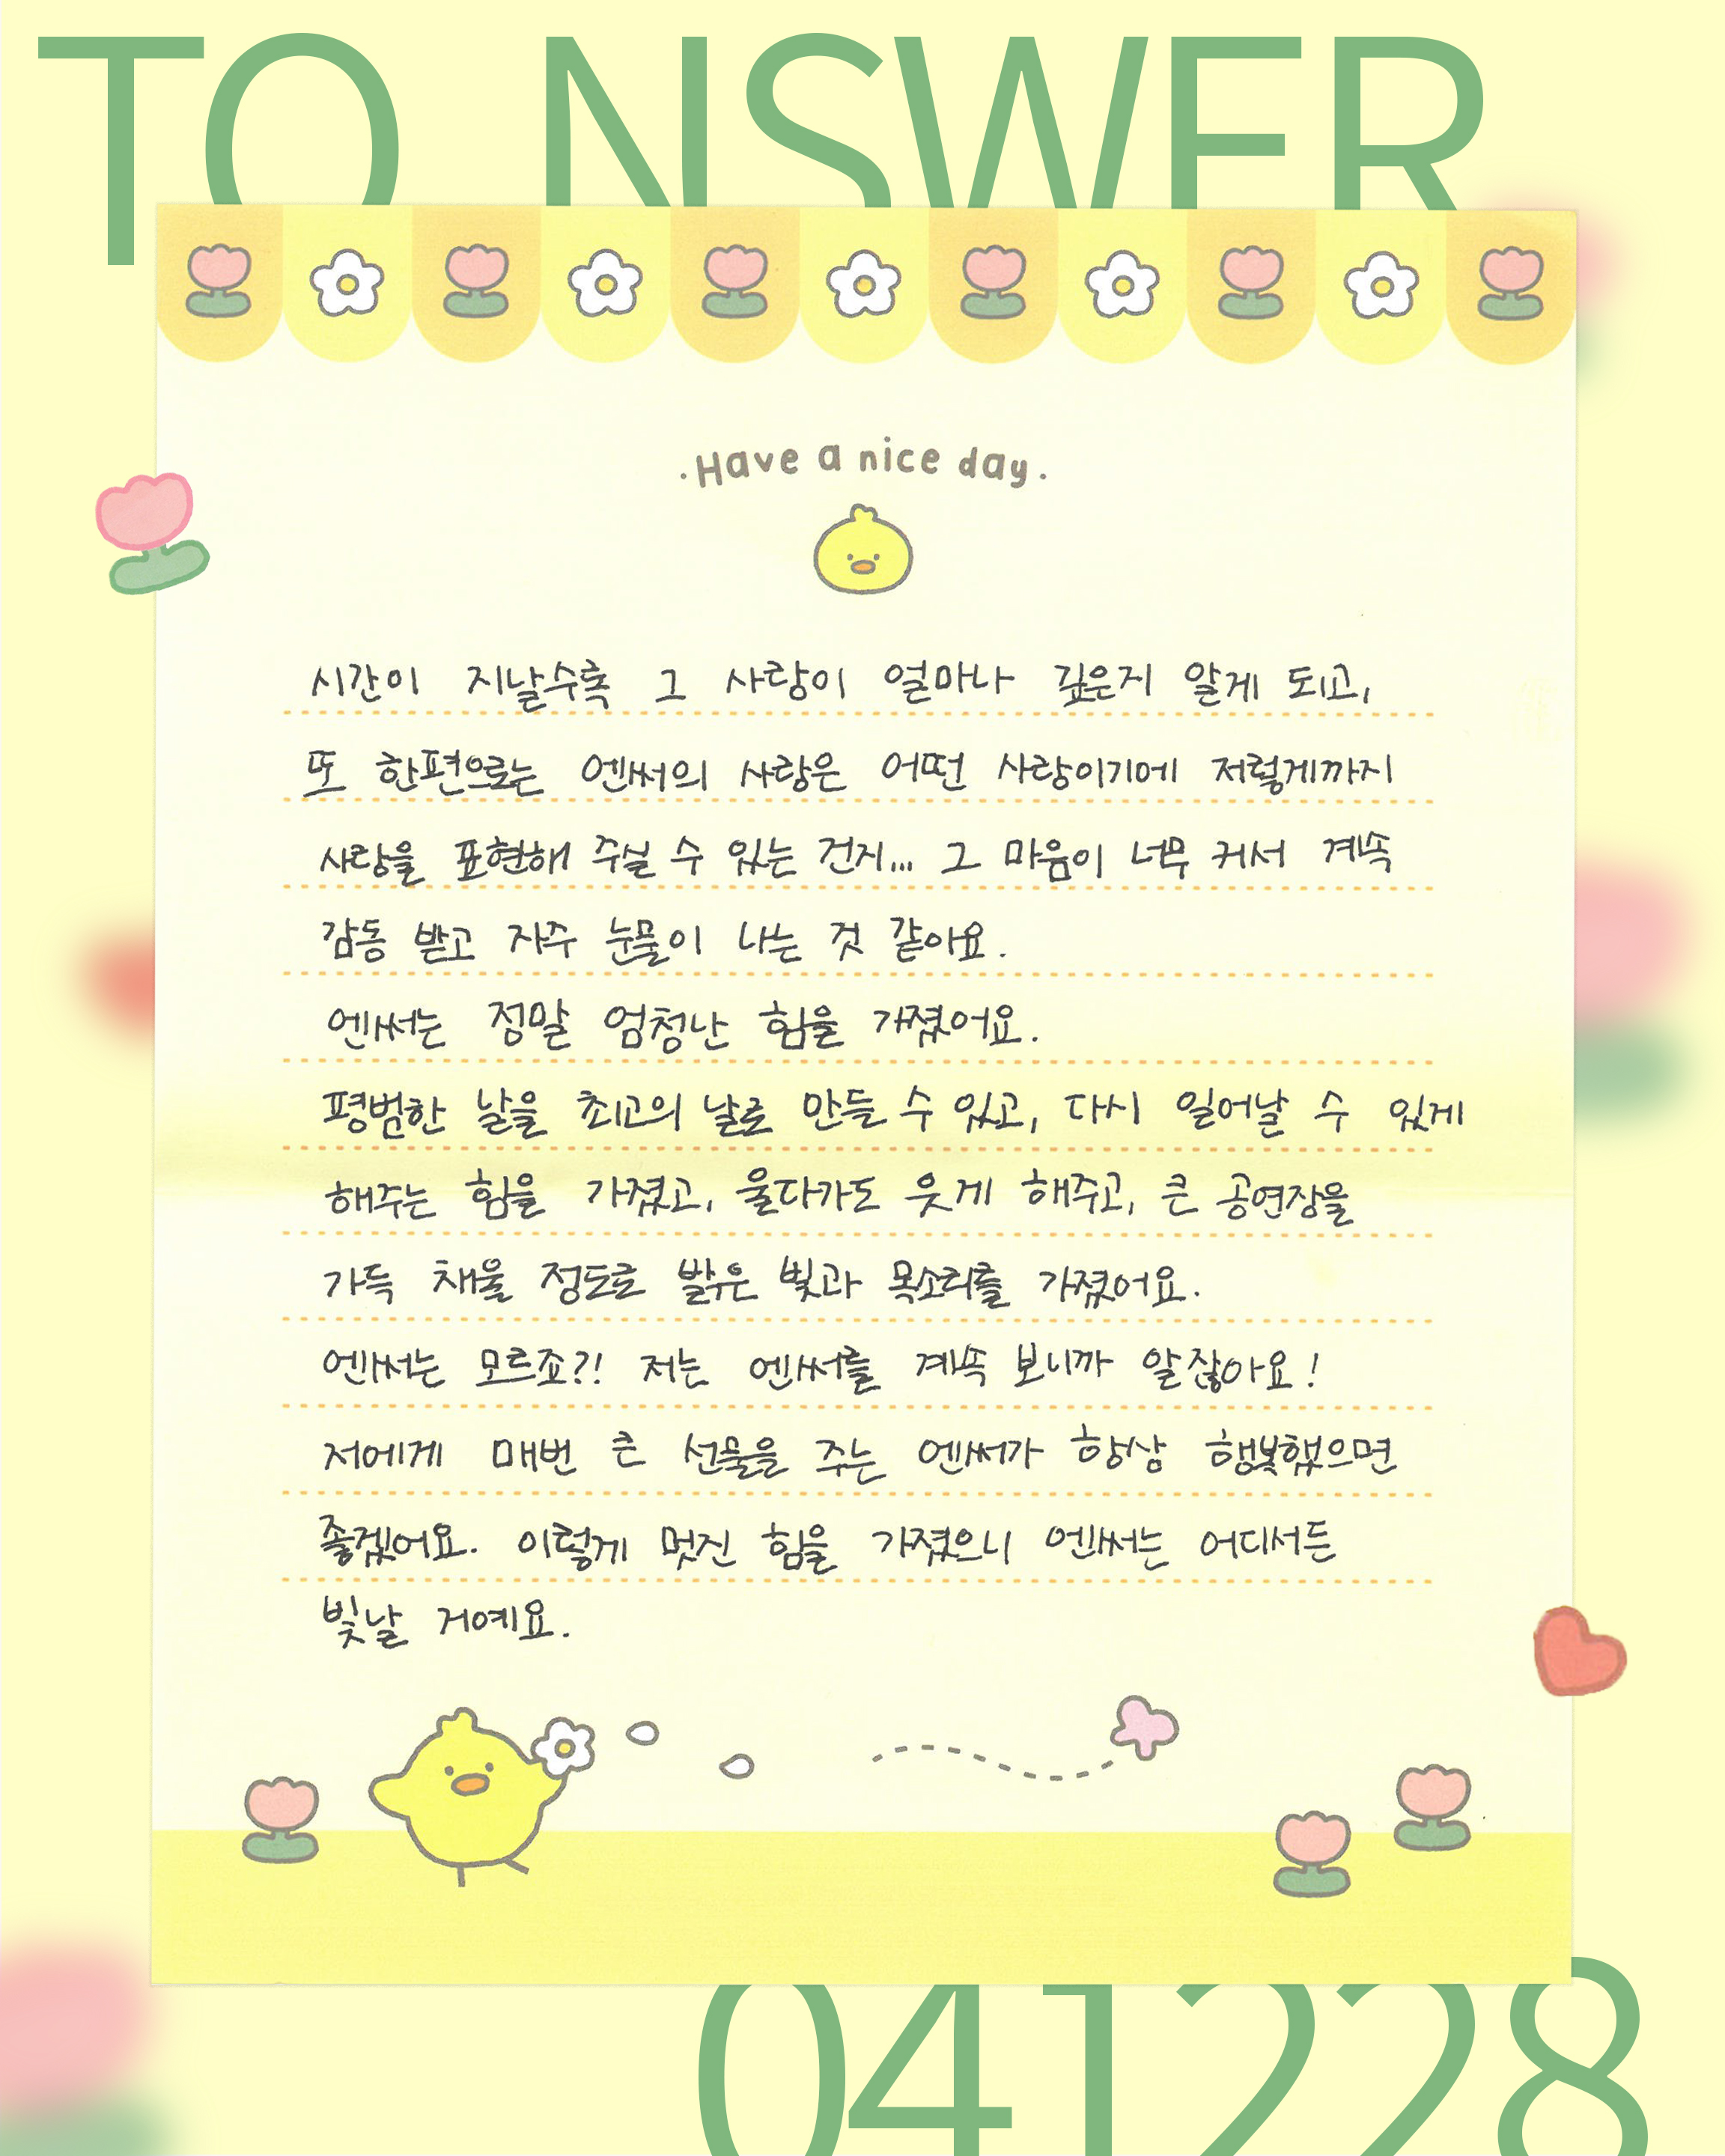 TO NSWER
·Have a nice day·
시간이 지날수록 그 사랑이 얼마나 깊은지 알게 되고,
또 한편으로는 엔써의 사랑은 어떤 사랑이기에 저렇게까지
사랑을 표현해 주실 수 있는 건지... 그 마음이 너무 커서 계속
감동 받고 자주 눈물이 나는 것 같아요.
엔써는 정말 엄청난 힘을 가졌어요.
평범한 날을 최고의 날로 만들 수 있고, 다시 일어날 수 있게
해주는 힘을 가졌고, 울다가도 웃게 해주고, 큰 공연장을
가득 채울 정도로 밝은 빛과 목소리를 가졌어요.
엔써는 모르죠?! 저는 엔써를 계속 보니까 알잖아요!
저에게 매번 큰 선물을 주는 엔써가 항상 행복했으면
좋겠어요. 이렇게 멋진 힘을 가졌으니 엔써는 어디서든
빛날 거예요.
041228